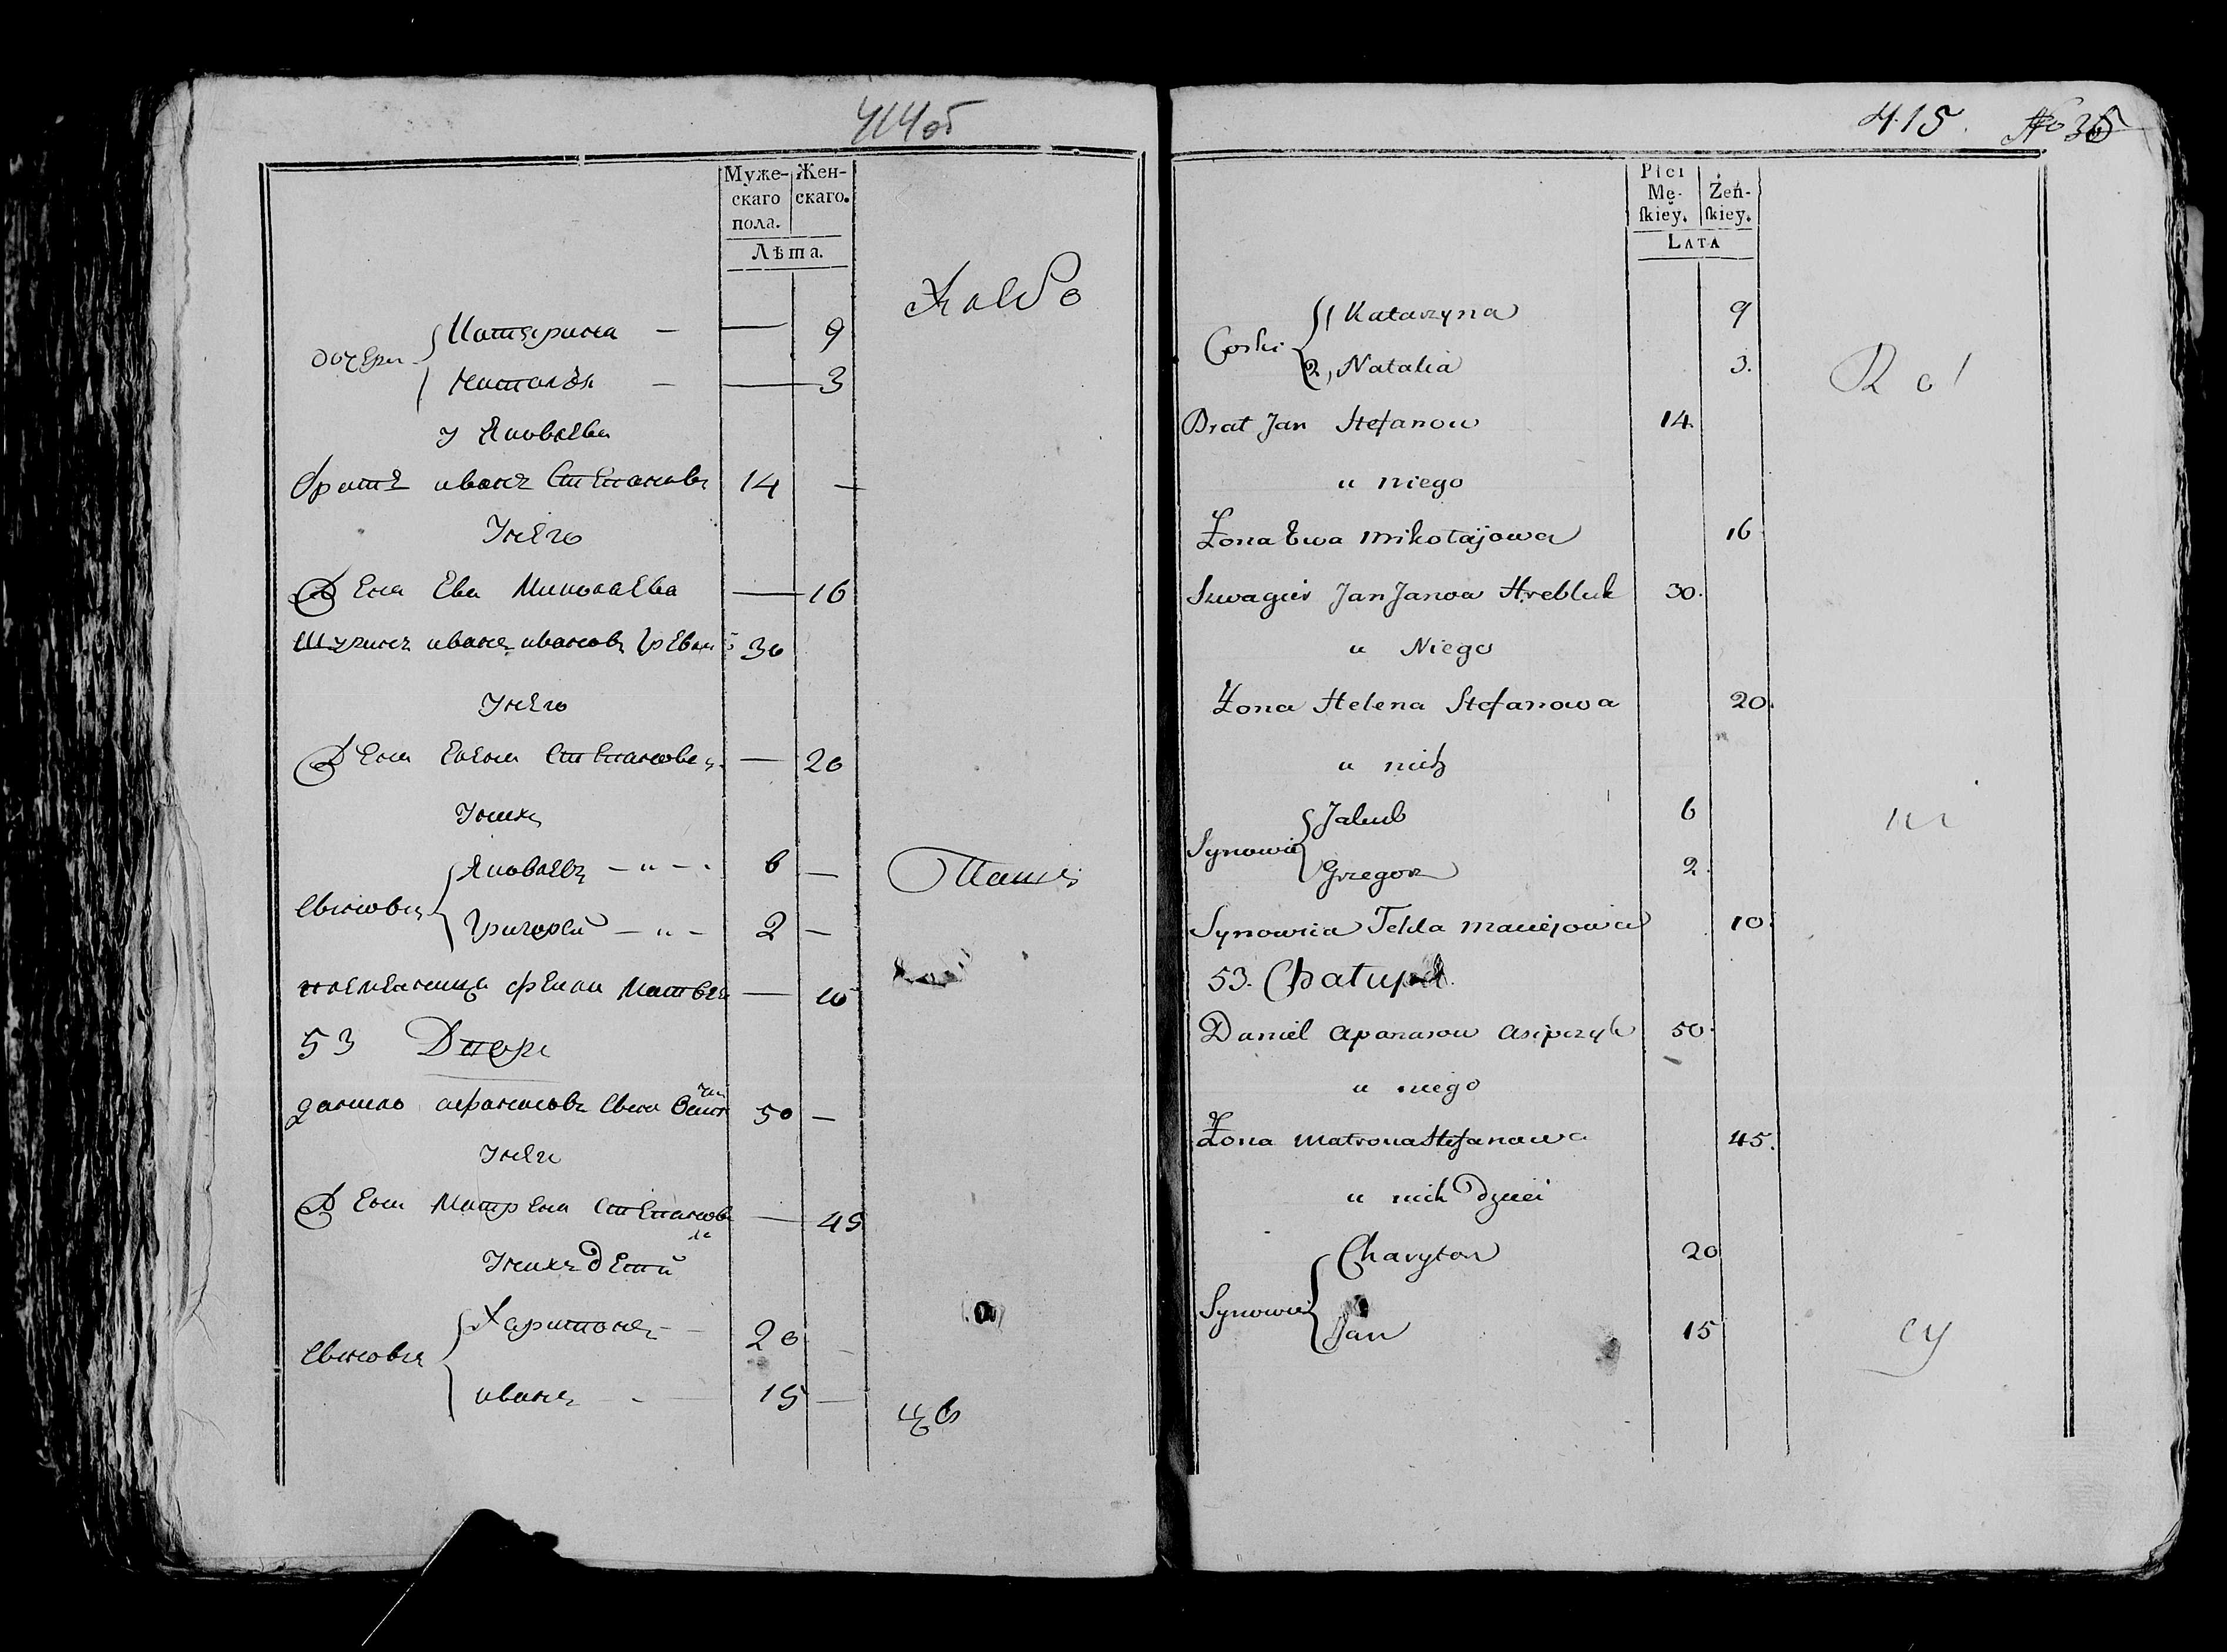 414об
Муже-
скаго
пола.
Жен-
скаго.
Лѣта.
дочери
Катерина — — 9
Наталья — — 3
У Яковлева
братъ иванъ Степановъ 14 —
Унего
Жена Ева Миколаева — 16
Шуринъ иванъ ивановъ 30
Унего
Жена Елена Степанова — 20
Унихъ
Сыновья
Яковъ — " — 6 —
Григорей — " — 2 —
племеница Матвея — 10
53 Дворъ
данило афанасовъ сынъ 50 —
Унего
Жена Матрена Степанова — 45
Унихъ детей
Сыновья
Харитонъ — 20 —
иванъ — 15 —
415. No 36
Płci
Mę-
skiey.
Żeń-
skiey.
LATA
Corki
1 Katarzyna 9
2, Natalia 3.
Brat Jan Stefanow 14.
u niego
Żona Ewa Mikołajowa 16
Szwagier Jan Janow Hrebluk 30.
u Niego
Żona Helena Stefanowa 20.
u nich
Synowie
Jakub 6
Gregorz 2.
Synowica Tekla Maciejowa 10.
53. Chałupa.
Daniel Apanasow Asipczyk 50.
u niego
Żona Matrona Stefanowa 45.
u nich Dzieci
Synowie
Charyton 20
Jan 15